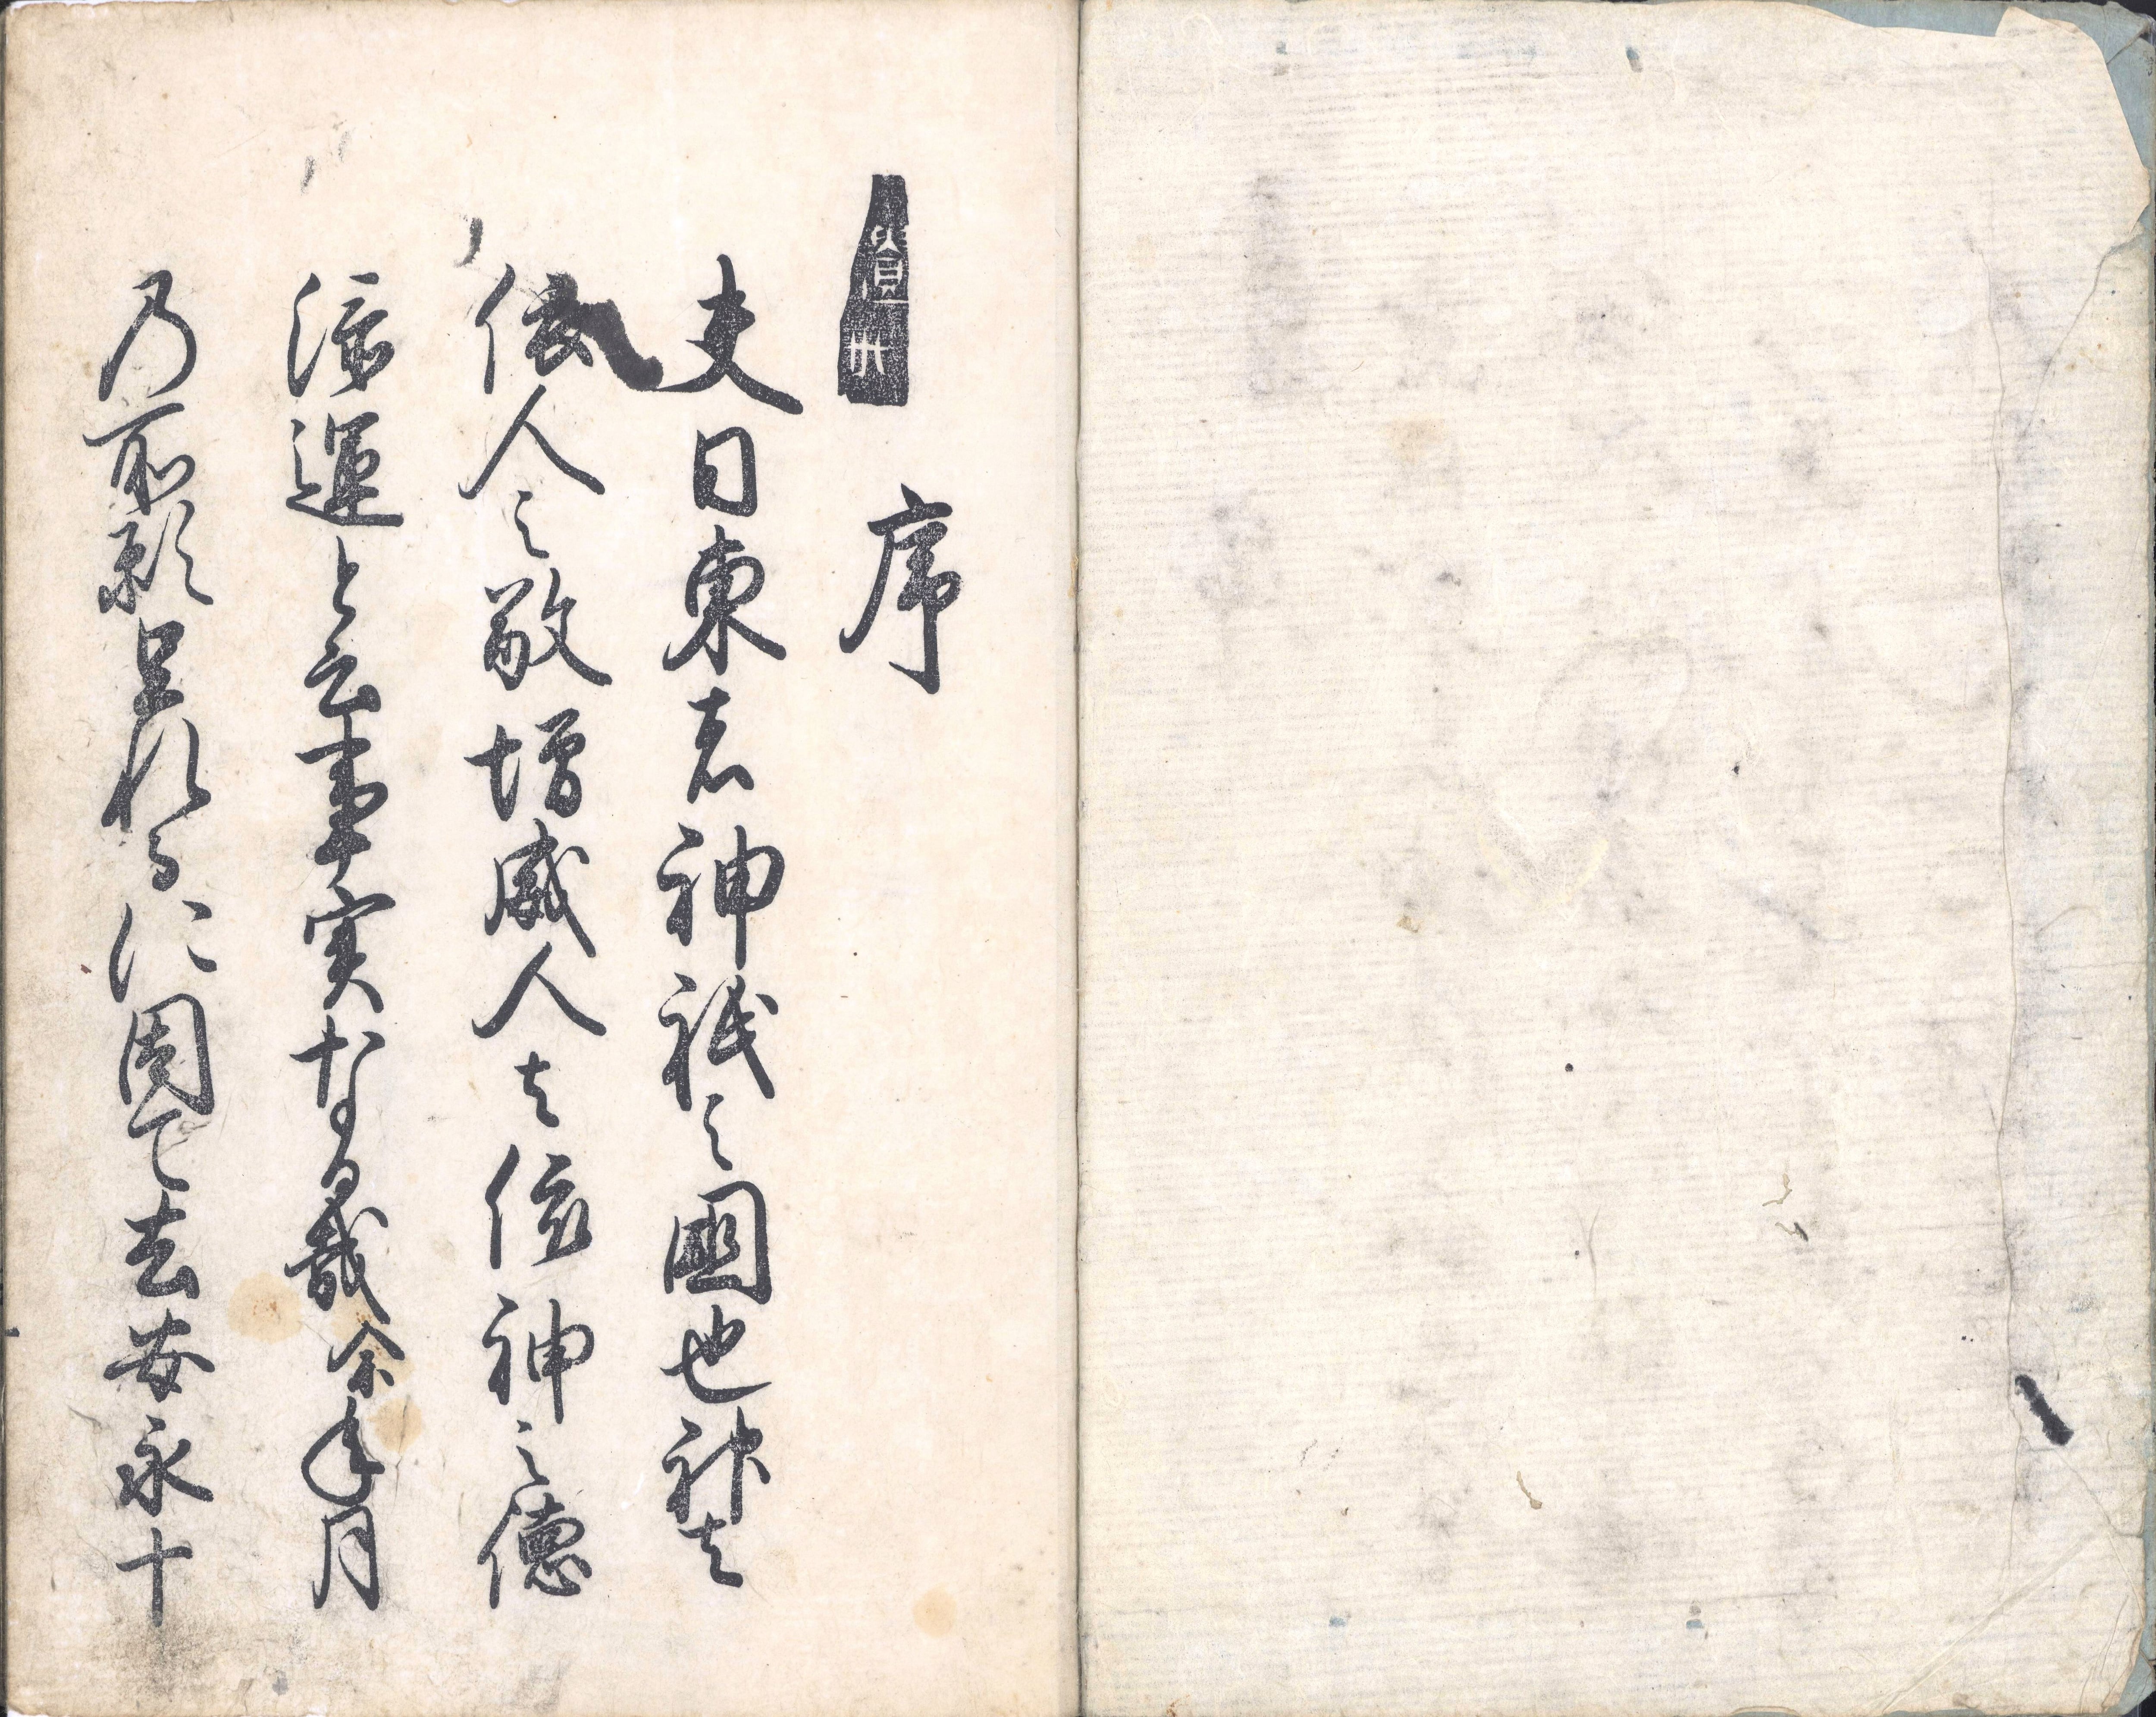 序
夫日東者神祇之國也神は
依人之敬増威人は依神之徳
添運と云事実なる哉余年月
乃所願呈れるに因て去安永十